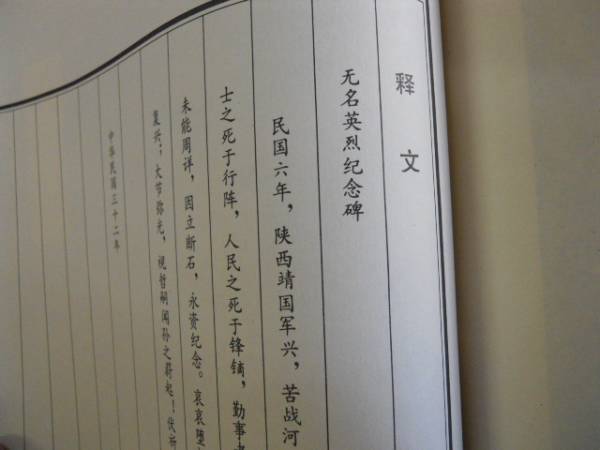 释文
无名英烈纪念碑
民国六年，陕西靖国军兴，苦战河
士之死于行阵，人民之死于锋镝，勤事者
未能周详，因立断石，永资纪念。哀哀堕
复兴；大节弥光，视哲嗣闻孙之蔚起！伏祈
中华民国三十二年